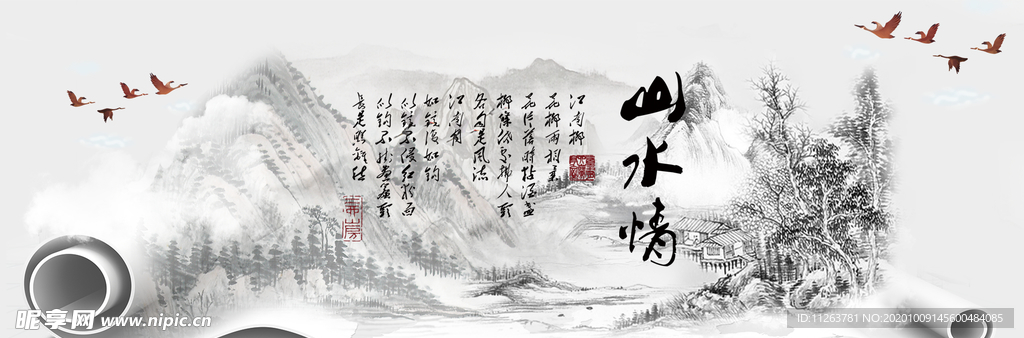 山水情
江南柳
花柳兩相柔
花片落時粘酒盞
柳條低處拂人頭
各自是風流
江南月
如鏡復如鈎
似鏡不侵紅粉面
似鈎不挂畫簾頭
長是照離愁
昵享网 www.nipic.cn
ID:11263781 NO:20201009145600484085